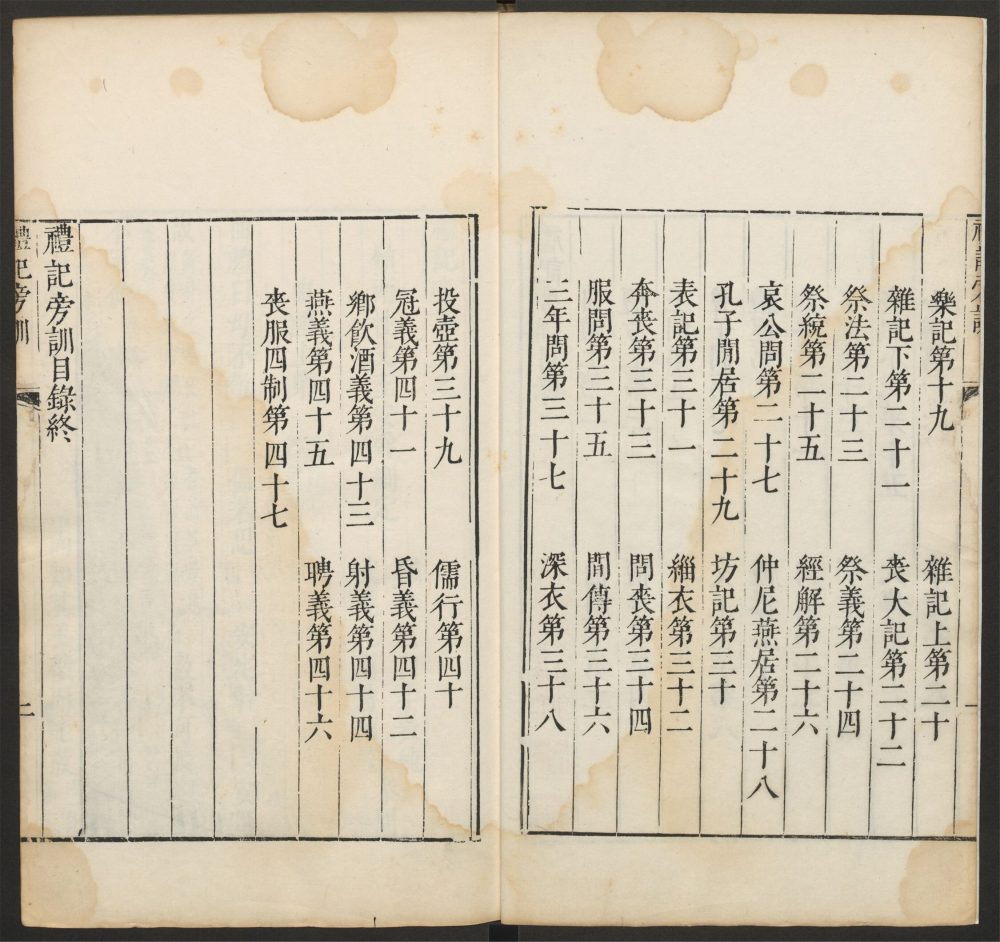 樂記第十九
雜記上第二十
雜記下第二十一
喪大記第二十二
祭法第二十三
祭義第二十四
祭統第二十五
經解第二十六
哀公問第二十七
仲尼燕居第二十八
孔子閒居第二十九
坊記第三十
表記第三十一
緇衣第三十二
奔喪第三十三
問喪第三十四
服問第三十五
間傳第三十六
三年問第三十七
深衣第三十八
投壺第三十九
儒行第四十
冠義第四十一
昏義第四十二
鄉飲酒義第四十三
射義第四十四
燕義第四十五
聘義第四十六
喪服四制第四十七
禮記旁訓目錄終
禮記旁訓
二